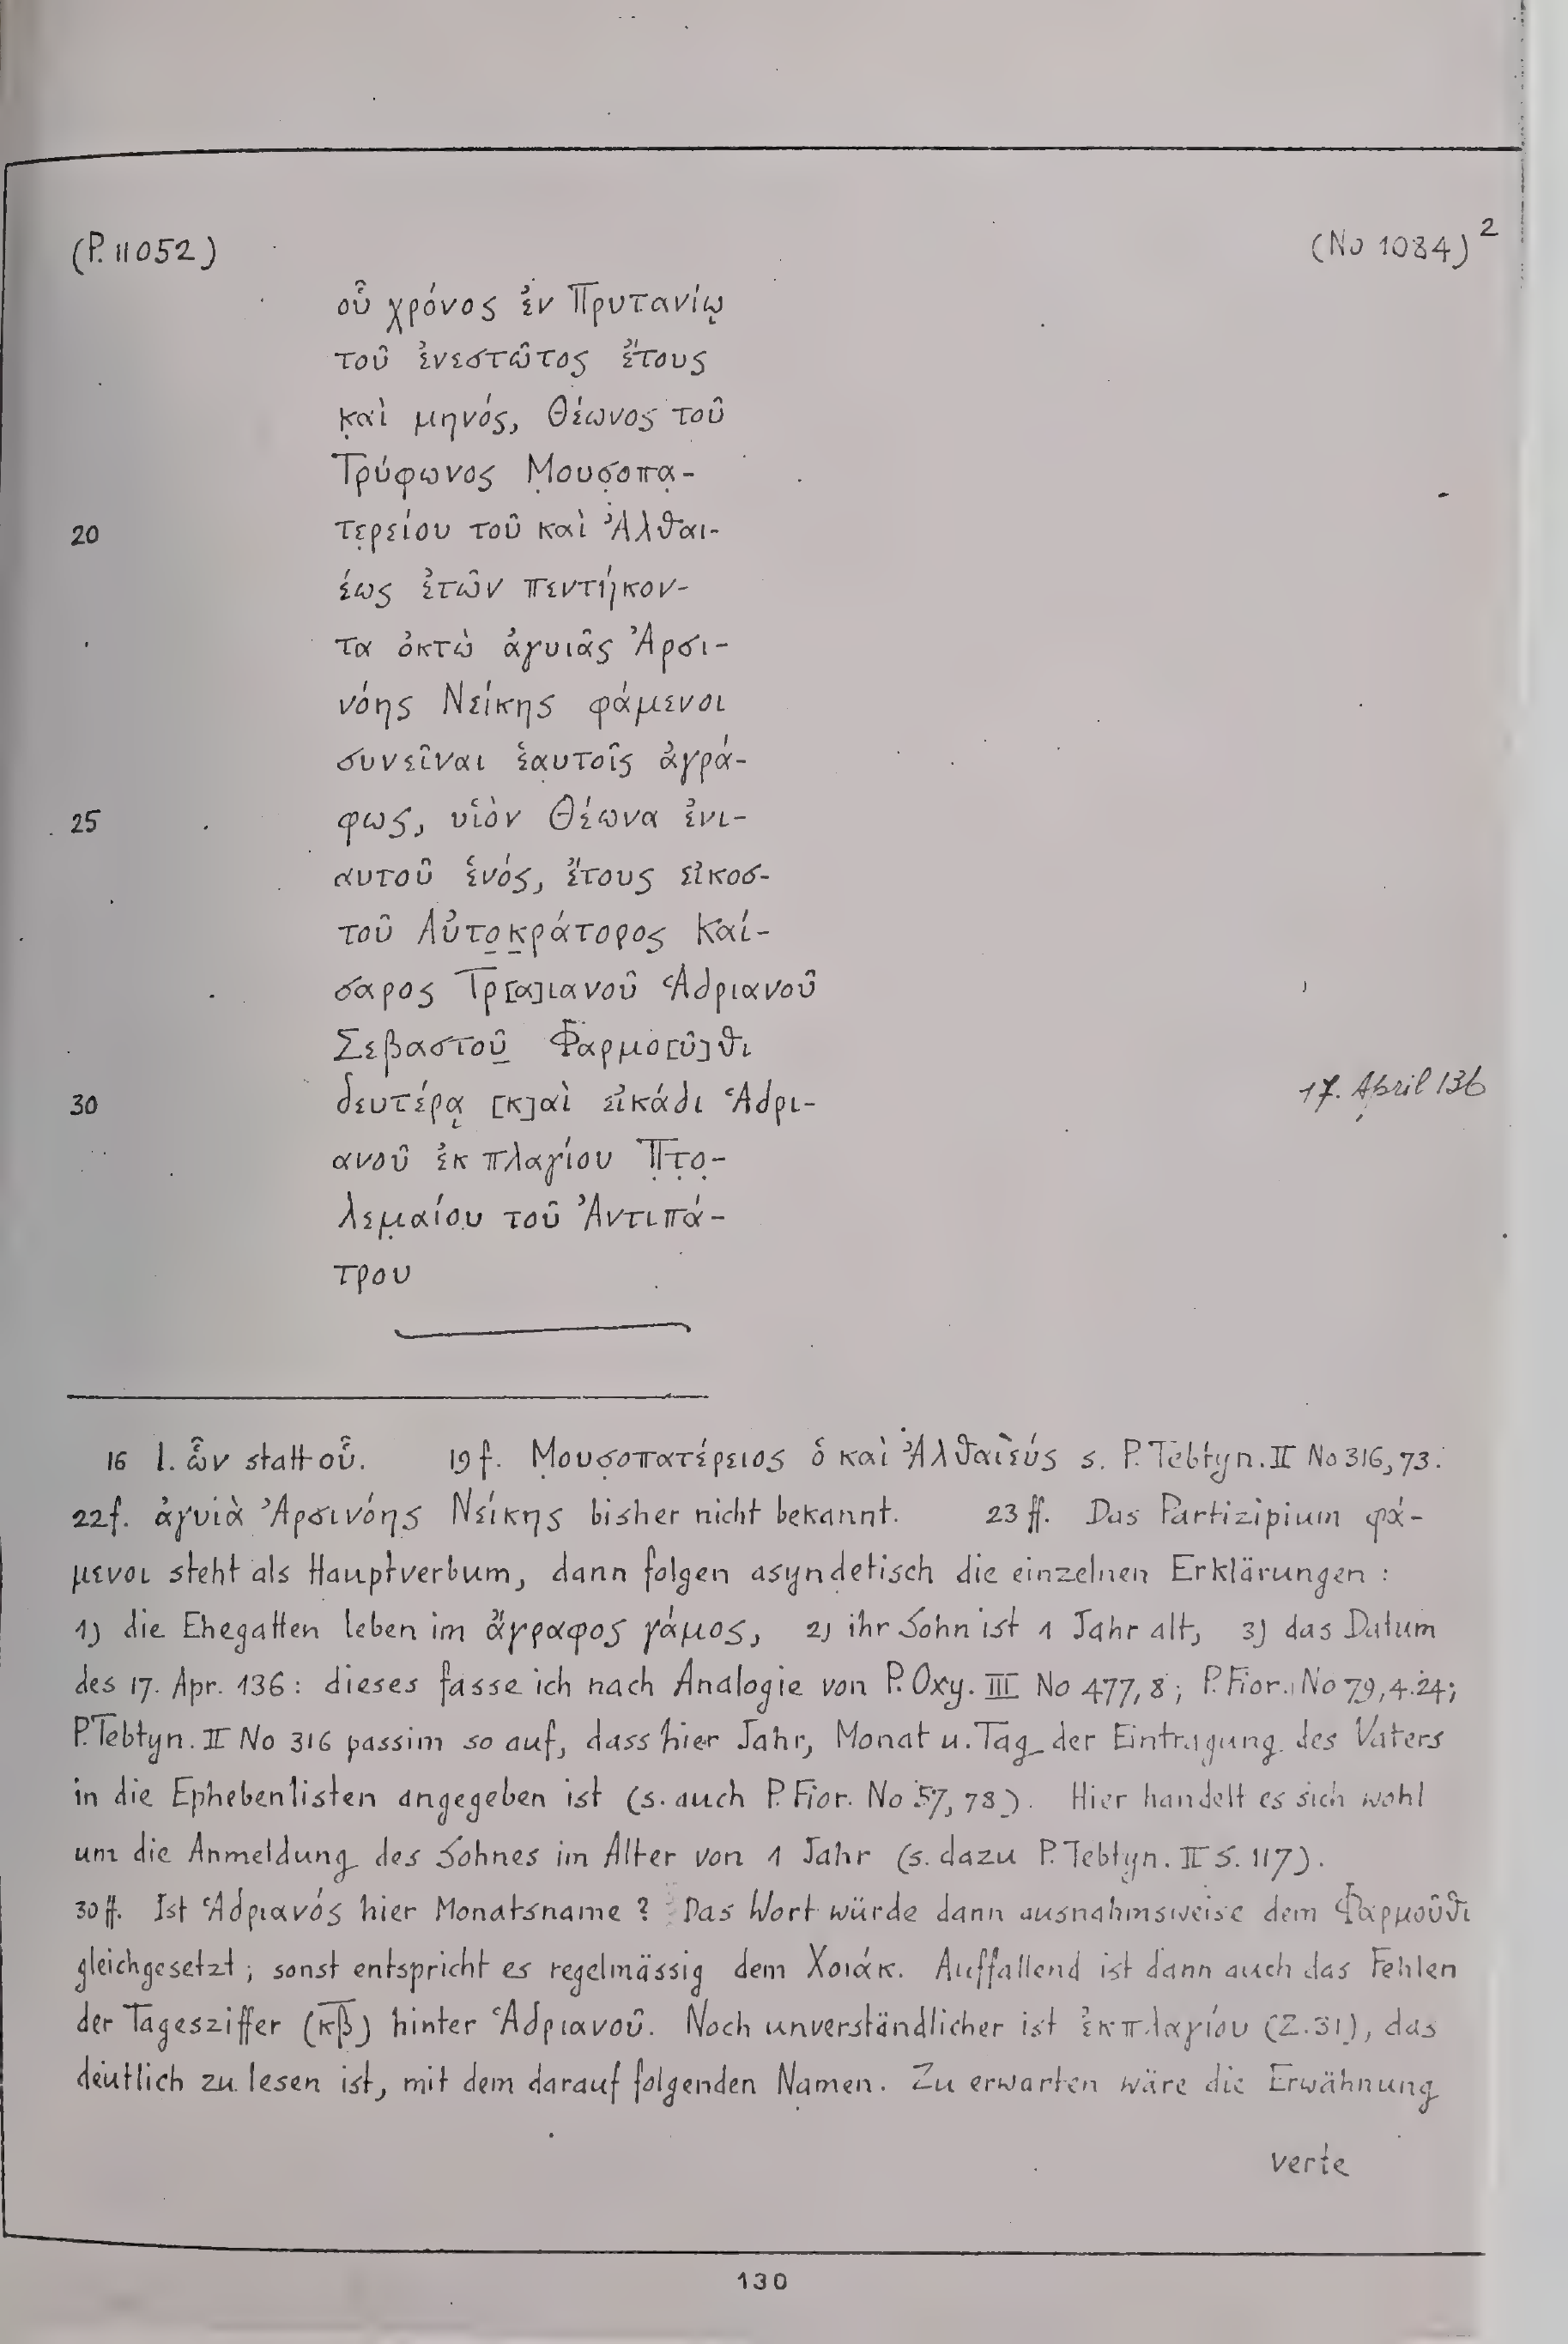 (P. 11052) (No 1084)²
οὗ χρόνος ἐν Πρυτανίῳ
τοῦ ἐνεστῶτος ἔτους
κ̣αὶ μηνός, Θέωνος τοῦ
Τρύφωνος Μ̣ουσ̣οπα̣-
20 τε̣ρείου τοῦ καὶ Ἀλθαι-
έως ἐτῶν πεντήκον-
τα ὀκτὼ ἀγυιᾶς Ἀρσι-
νόης Νείκης φάμενοι
συνεῖναι ἑαυτοῖς ἀγρά-
25 φως, υἱὸν Θέωνα ἐνι-
αυτοῦ ἑνός, ἔτους εἰκοσ-
τοῦ Αὐτοκράτορος Καί-
σαρος Τρ[α]ιανοῦ Ἁδριανοῦ
Σεβαστοῦ Φαρμο[ῦ]θι
30 δευτέρᾳ [κ]αὶ εἰκάδι Ἁδρι- 17. April 136
ανοῦ ἐκ πλαγίου Π̣τ̣ο̣-
λεμ̣αίου τοῦ Ἀντιπά-
τρου
16 l. ὧν statt οὗ. 19 f. Μουσοπατέρειος ὁ καὶ Ἀλθαιεύς s. P. Tebtyn. II No 316, 73.
22f. ἀγυιὰ Ἀρσινόης Νείκης bisher nicht bekannt. 23 ff. Das Partizipium φά-
μενοι steht als Hauptverbum, dann folgen asyndetisch die einzelnen Erklärungen:
1) die Ehegatten leben im ἄγραφος γάμος, 2) ihr Sohn ist 1 Jahr alt, 3) das Datum
des 17. Apr. 136: dieses fasse ich nach Analogie von P. Oxy. III No 477, 8; P. Fior. No 79, 4.24;
P. Tebtyn. II No 316 passim so auf, dass hier Jahr, Monat u. Tag der Eintragung des Vaters
in die Ephebenlisten angegeben ist (s. auch P. Fior. No 57, 78). Hier handelt es sich wohl
um die Anmeldung des Sohnes im Alter von 1 Jahr (s. dazu P. Tebtyn. II S. 117).
30 ff. Ist Ἁδριανός hier Monatsname? Das Wort würde dann ausnahmsweise dem Φαρμοῦθι
gleichgesetzt; sonst entspricht es regelmässig dem Χοιάκ. Auffallend ist dann auch das Fehlen
der Tagesziffer (κ̅β̅) hinter Ἁδριανοῦ. Noch unverständlicher ist ἐκ πλαγίου (Z. 31), das
deutlich zu lesen ist, mit dem darauf folgenden Namen. Zu erwarten wäre die Erwähnung
verte
130